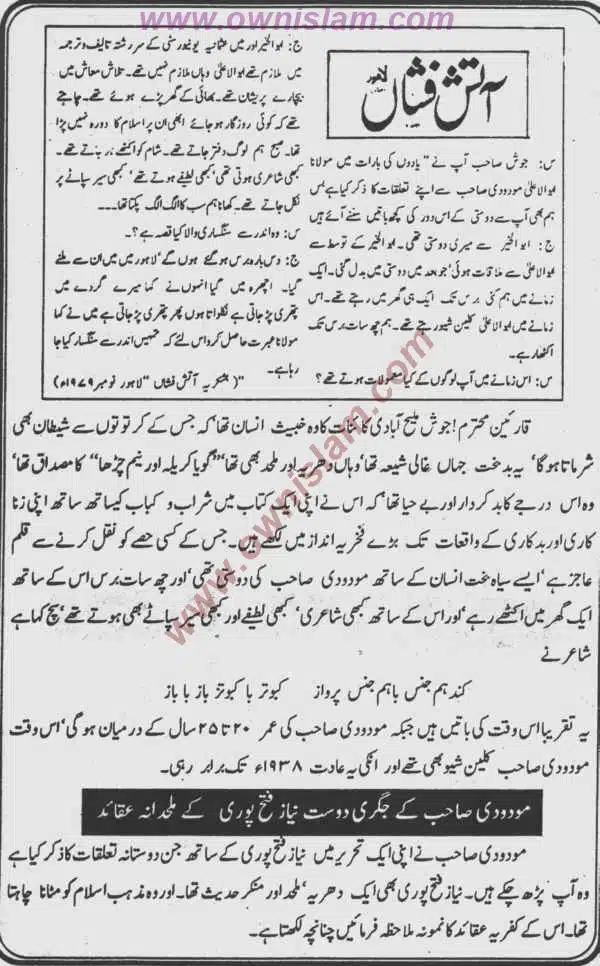 www.ownislam.com
آتش فشاں لاہور
س: جوش صاحب آپ نے "یادوں کی بارات میں مولانا
ابوالاعلیٰ مودودی صاحب سے اپنے تعلقات کا ذکر کیا ہے بس
ہم بھی آپ سے دوستی کے اس دور کی کچھ باتیں سننے آئے ہیں
ج: ابوالخیر سے میری دوستی تھی۔ ابوالخیر کے توسط سے
ابوالاعلیٰ سے ملاقات ہوئی' جو بعد میں دوستی میں بدل گئی۔ ایک
زمانے میں ہم کئی برس تک ایک ہی گھر میں رہتے تھے۔ اس
زمانے میں ابوالاعلیٰ کلین شیو رہتے تھے۔ ہم چھ سات برس تک
اکٹھا رہے۔
س: اس زمانے میں آپ لوگوں کے کیا معمولات ہوتے تھے؟
ج: ابوالخیر اور میں عثمانیہ یونیورسٹی کے سررشتہ تالیف و ترجمہ
میں ملازم تھے ابوالاعلیٰ وہاں ملازم نہیں تھے۔ تلاش معاش میں
بچارے پریشان تھے۔ بھائی کے گھر پڑے ہوئے تھے۔ چاہتے
تھے کہ کوئی روزگار ہو جائے ابھی ان پر اسلام کا دورہ نہیں پڑا
تھا۔ صبح ہم لوگ دفتر جاتے تھے۔ شام کو اکٹھے رہتے تھے۔
کبھی شاعری ہوتی تھی' کبھی لطیفے ہوتے تھے' کبھی سیر سپاٹے پر
نکل جاتے تھے۔ کھانا ہم سب کا الگ الگ پکتا تھا۔۔۔
س: وہ اندر سے سنگساری والا کیا قصہ ہے؟۔
ج: دس بارہ برس ہو گئے ہوں گے' لاہور میں میں ان سے ملنے
گیا۔ اچھرہ میں گیا انہوں نے کہا میرے گردے میں
پتھری پڑ جاتی ہے نکلواتا ہوں پھر پتھری پڑ جاتی ہے میں نے کہا
مولانا عبرت حاصل کرو اس لئے کہ تمہیں اندر سے سنگسار کیا جا
رہا ہے۔
"( بشکریہ آتش فشاں" لاہور نومبر ۱۹۷۹ء)
قارئین محترم! جوش ملیح آبادی کائنات کا وہ خبیث انسان تھا' کہ جس کے کرتوتوں سے شیطان بھی
شرماتا ہوگا' یہ بدبخت جہاں غالی شیعہ تھا' وہاں دھریہ اور ملحد بھی تھا' "گویا کریلہ اور نیم چڑھا" کا مصداق تھا'
وہ اس درجے کا بد کردار اور بے حیا تھا' کہ اس نے اپنی ایک کتاب میں شراب و کباب کیساتھ ساتھ اپنی زنا
کاری اور بدکاری کے واقعات تک بڑے فخریہ انداز میں لکھے ہیں۔ جس کے کسی حصے کو نقل کرنے سے قلم
عاجز ہے' ایسے سیاہ بخت انسان کے ساتھ مودودی صاحب کی دوستی تھی' اور چھ سات برس اس کے ساتھ
ایک گھر میں اکٹھے رہے' اور اس کے ساتھ کبھی شاعری' کبھی لطیفے اور کبھی سیر سپاٹے بھی ہوتے تھے' سچ کہا ہے
شاعر نے
کند ہم جنس باہم جنس پرواز کبوتر با کبوتر باز با باز
یہ تقریبا اس وقت کی باتیں ہیں جبکہ مودودی صاحب کی عمر ۲۰ تا ۲۵ سال کے درمیان ہوگی' اس وقت
مودودی صاحب کلین شیو بھی تھے اور انکی یہ عادت ۱۹۳۸ء تک برابر رہی۔
مودودی صاحب کے جگری دوست نیاز فتح پوری کے ملحدانہ عقائد
مودودی صاحب نے اپنی ایک تحریر میں نیاز فتح پوری کے ساتھ جن دوستانہ تعلقات کا ذکر کیا ہے
وہ آپ پڑھ چکے ہیں۔ نیاز فتح پوری بھی ایک دھریہ' ملحد اور منکر حدیث تھا۔ اور وہ مذہب اسلام کو مٹانا چاہتا
تھا۔ اس کے کفریہ عقائد کا نمونہ ملاحظہ فرمائیں چنانچہ لکھتا ہے۔
www.ownislam.com